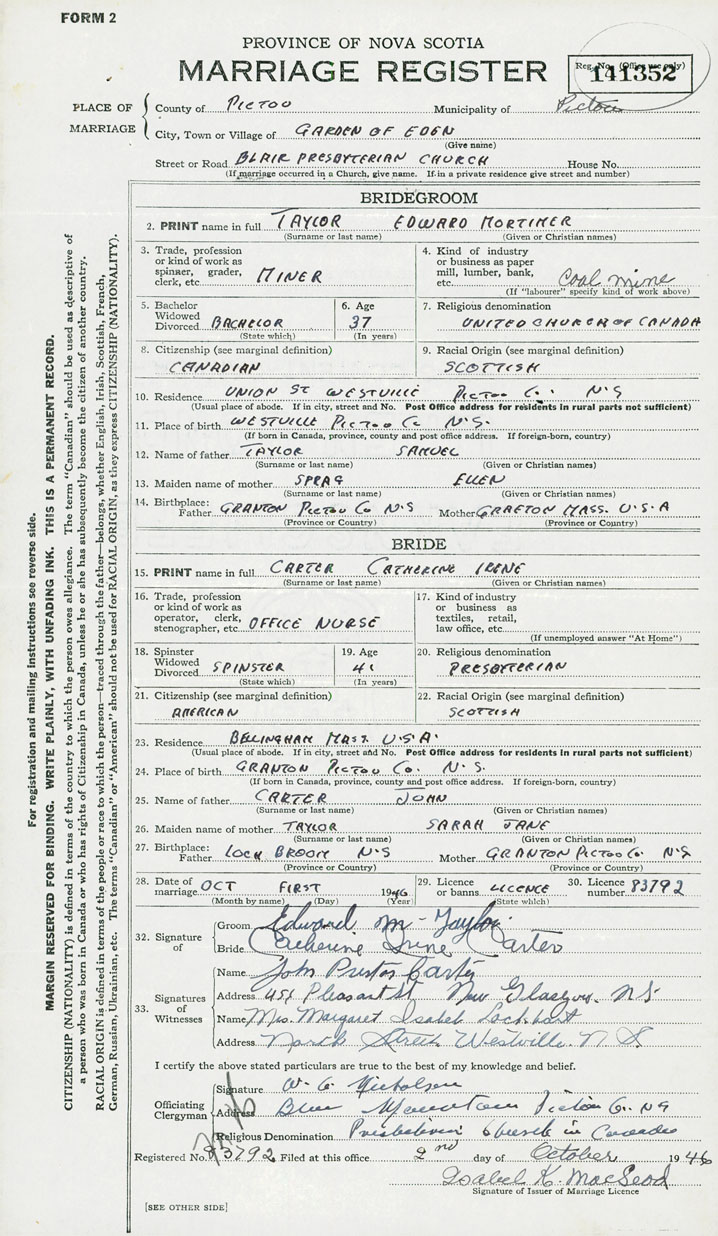 FORM 2
PROVINCE OF NOVA SCOTIA
MARRIAGE REGISTER
Reg. No. (Office use only)
141352
PLACE OF MARRIAGE
County of PICTOU Municipality of Pictou
City, Town or Village of GARDEN OF EDEN
(Give name)
Street or Road BLAIR PRESBYTERIAN CHURCH House No.
(If marriage occurred in a Church, give name. If in a private residence give street and number)
BRIDEGROOM
2. PRINT name in full TAYLOR EDWARD MORTIMER
(Surname or last name) (Given or Christian names)
3. Trade, profession or kind of work as spinner, grader, clerk, etc. MINER
4. Kind of industry or business as paper mill, lumber, bank, etc. Coal mine
(If "labourer" specify kind of work above)
5. Bachelor Widowed Divorced BACHELOR
(State which)
6. Age 37
(In years)
7. Religious denomination
UNITED CHURCH OF CANADA
8. Citizenship (see marginal definition)
CANADIAN
9. Racial Origin (see marginal definition)
SCOTTISH
10. Residence UNION ST WESTVILLE PICTOU Co. N.S
(Usual place of abode. If in city, street and No. Post Office address for residents in rural parts not sufficient)
11. Place of birth WESTVILLE PICTOU Co N.S.
(If born in Canada, province, county and post office address. If foreign-born, country)
12. Name of father TAYLOR SAMUEL
(Surname or last name) (Given or Christian names)
13. Maiden name of mother SPRAG ELLEN
(Surname or last name) (Given or Christian names)
14. Birthplace: Father GRANTON PICTOU Co N.S Mother GRAFTON MASS. U.S.A
(Province or Country) (Province or Country)
BRIDE
15. PRINT name in full CARTER CATHERINE IRENE
(Surname or last name) (Given or Christian names)
16. Trade, profession or kind of work as operator, clerk, stenographer, etc. OFFICE NURSE
17. Kind of industry or business as textiles, retail, law office, etc.
(If unemployed answer "At Home")
18. Spinster Widowed Divorced SPINSTER
(State which)
19. Age 41
(In years)
20. Religious denomination
PRESBYTERIAN
21. Citizenship (see marginal definition)
AMERICAN
22. Racial Origin (see marginal definition)
SCOTTISH
23. Residence BELLINGHAM MASS. U.S.A.
(Usual place of abode. If in city, street and No. Post Office address for residents in rural parts not sufficient)
24. Place of birth GRANTON PICTOU Co. N.S.
(If born in Canada, province, county and post office address. If foreign-born, country)
25. Name of father CARTER JOHN
(Surname or last name) (Given or Christian names)
26. Maiden name of mother TAYLOR SARAH JANE
(Surname or last name) (Given or Christian names)
27. Birthplace: Father LOCH BROOM N.S Mother GRANTON PICTOU Co. N.S
(Province or Country) (Province or Country)
28. Date of marriage OCT FIRST 1946
(Month by name) (Day) (Year)
29. Licence or banns LICENCE
(State which)
30. Licence number 83792
32. Signature of
Groom Edward M. Taylor
Bride Catherine Irene Carter
33. Signatures of Witnesses
Name John Preston Carter
Address 451 Pleasant St. New Glasgow. NS
Name Mrs. Margaret Isabel Lockhart
Address North Street Westville. N.S.
I certify the above stated particulars are true to the best of my knowledge and belief.
Officiating Clergyman
Signature W. G. Nicholson
Address Blue Mountain Pictou Co. NS
Religious Denomination Presbyterian Church in Canada
Registered No. 83792 Filed at this office 2nd day of October 1946
Isabel K. MacLeod
Signature of Issuer of Marriage Licence
[SEE OTHER SIDE]
For registration and mailing instructions see reverse side.
MARGIN RESERVED FOR BINDING. WRITE PLAINLY, WITH UNFADING INK. THIS IS A PERMANENT RECORD.
CITIZENSHIP (NATIONALITY) is defined in terms of the country to which the person owes allegiance. The term "Canadian" should be used as descriptive of
a person who was born in Canada or who has rights of Citizenship in Canada, unless he or she has subsequently become the citizen of another country.
RACIAL ORIGIN is defined in terms of the people or race to which the person—traced through the father—belongs, whether English, Irish, Scottish, French,
German, Russian, Ukrainian, etc. The terms "Canadian" or "American" should not be used for RACIAL ORIGIN, as they express CITIZENSHIP (NATIONALITY).